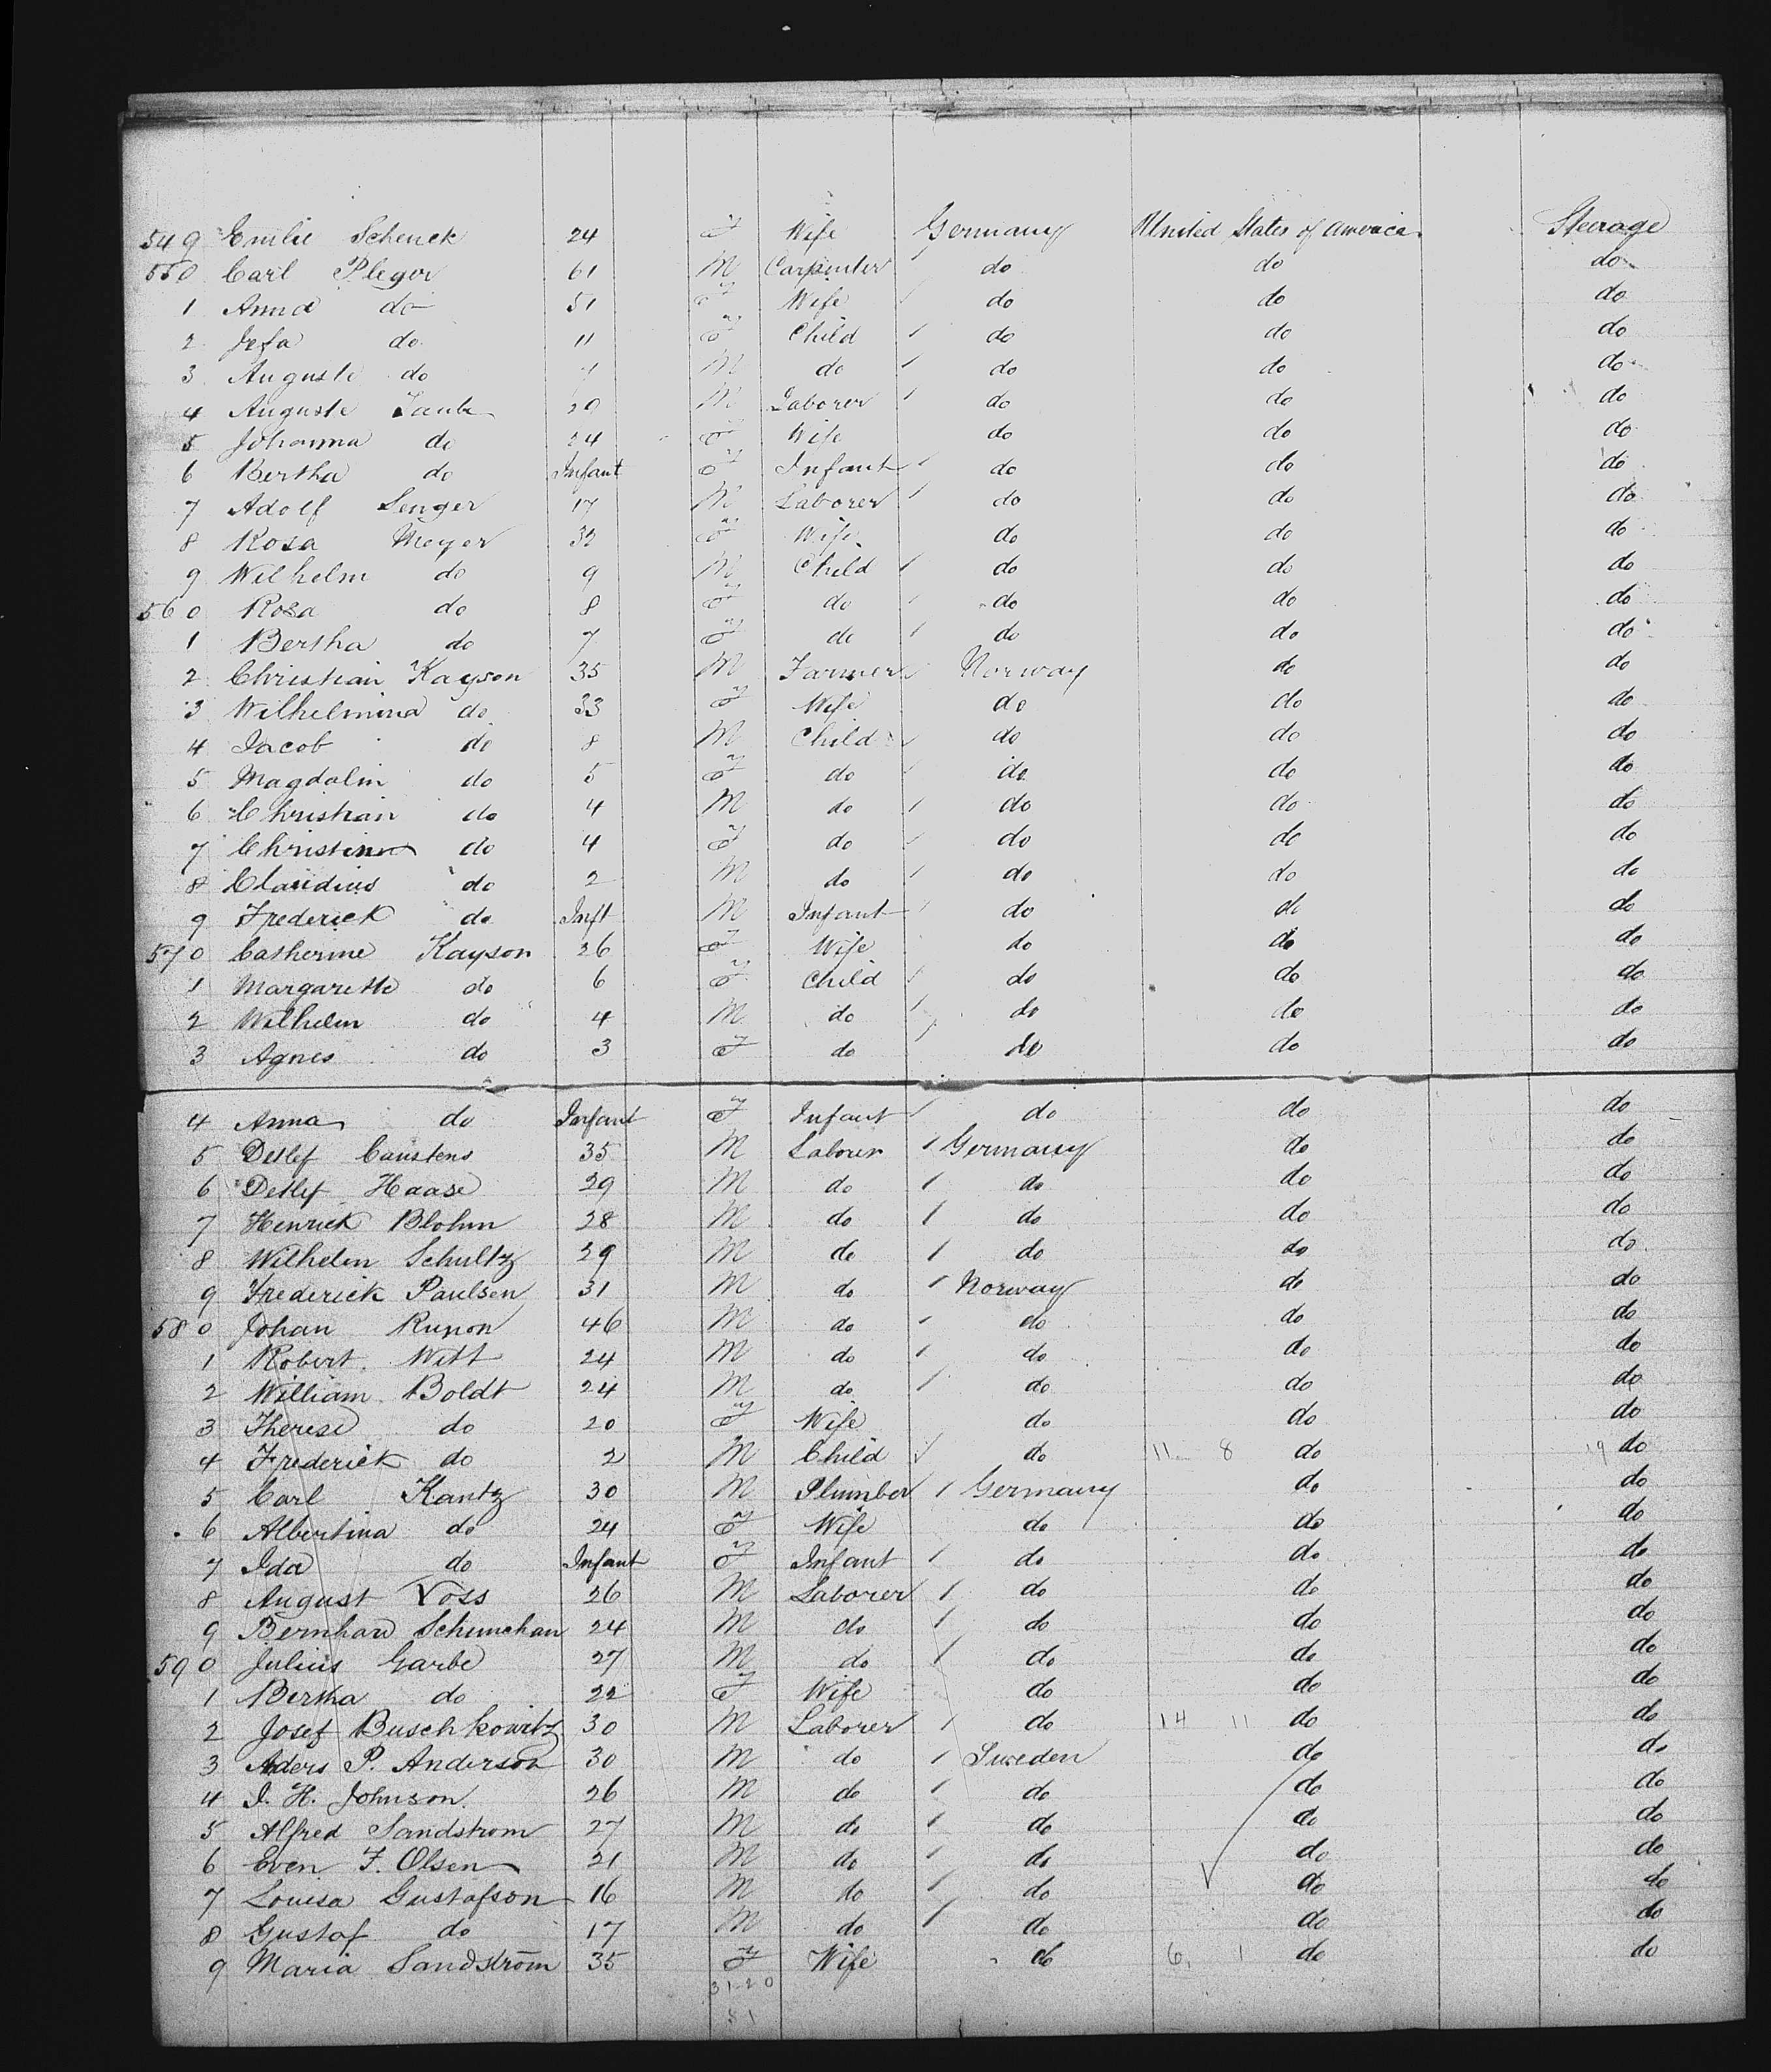 549 Emilie Schenck 24 F Wife Germany United States of America Steerage
550 Carl Pleger 61 M Carpenter do do do
1 Anna do 51 F Wife do do do
2 Jefa do 11 F Child do do do
3 Auguste do M do do do do
4 Auguste 29 M Laborer do do do
5 Johanna do 24 F Wife do do do
6 Bertha do Infant F Infant do do do
7 Adolf Senger 17 M Laborer do do do
8 Rosa Meyer 32 F Wife do do do
9 Wilhelm do 9 M Child do do do
560 Rosa do 8 F do do do do
1 Bertha do 7 F do do do do
2 Christian Kayson 35 M Farmer Norway do do
3 Wilhelmina do 33 F Wife do do do
4 Jacob do 8 M Child do do do
5 Magdalin do 5 F do do do do
6 Christian do 4 M do do do do
7 Christina do 4 F do do do do
8 Claudius do 2 M do do do do
9 Frederick do Inft M Infant do do do
570 Catherine Kayson 26 F Wife do do do
1 Margarethe do 6 F Child do do do
2 Wilhelm do 4 M do do do do
3 Agnes do 3 F do do do do
4 Anna do Infant F Infant do do do
5 Detlef Caustens 35 M Laborer Germany do do
6 Detlef Haase 29 M do do do do
7 Henrick Blohm 28 M do do do do
8 Wilhelm Schultz 29 M do do do do
9 Frederick Paulsen 31 M do Norway do do
580 Johan Runon 46 M do do do do
1 Robert Witt 24 M do do do do
2 William Boldt 24 M do do do do
3 Therese do 20 F Wife do do do
4 Frederick do 2 M Child do 11 8 do 19 do
5 Carl Kantz 30 M Plumber Germany do do
6 Albertina do 24 F Wife do do do
7 Ida do Infant F Infant do do do
8 August Voss 26 M Laborer do do do
9 Bernhard Schunchan 24 M do do do do
590 Julius Garbe 27 M do do do do
1 Bertha do 22 F Wife do do do
2 Josef Buschkowitz 30 M Laborer do 14 11 do do
3 Aders P. Anderson 30 M do Sweden do do
4 J. H. Johnson 26 M do do do do
5 Alfred Sandstrom 27 M do do do do
6 Even F. Olsen 21 M do do do do
7 Louisa Gustafson 16 M do do do do
8 Gustaf do 17 M do do do do
9 Maria Sandström 35 F Wife do 6 1 do do
31-20
51